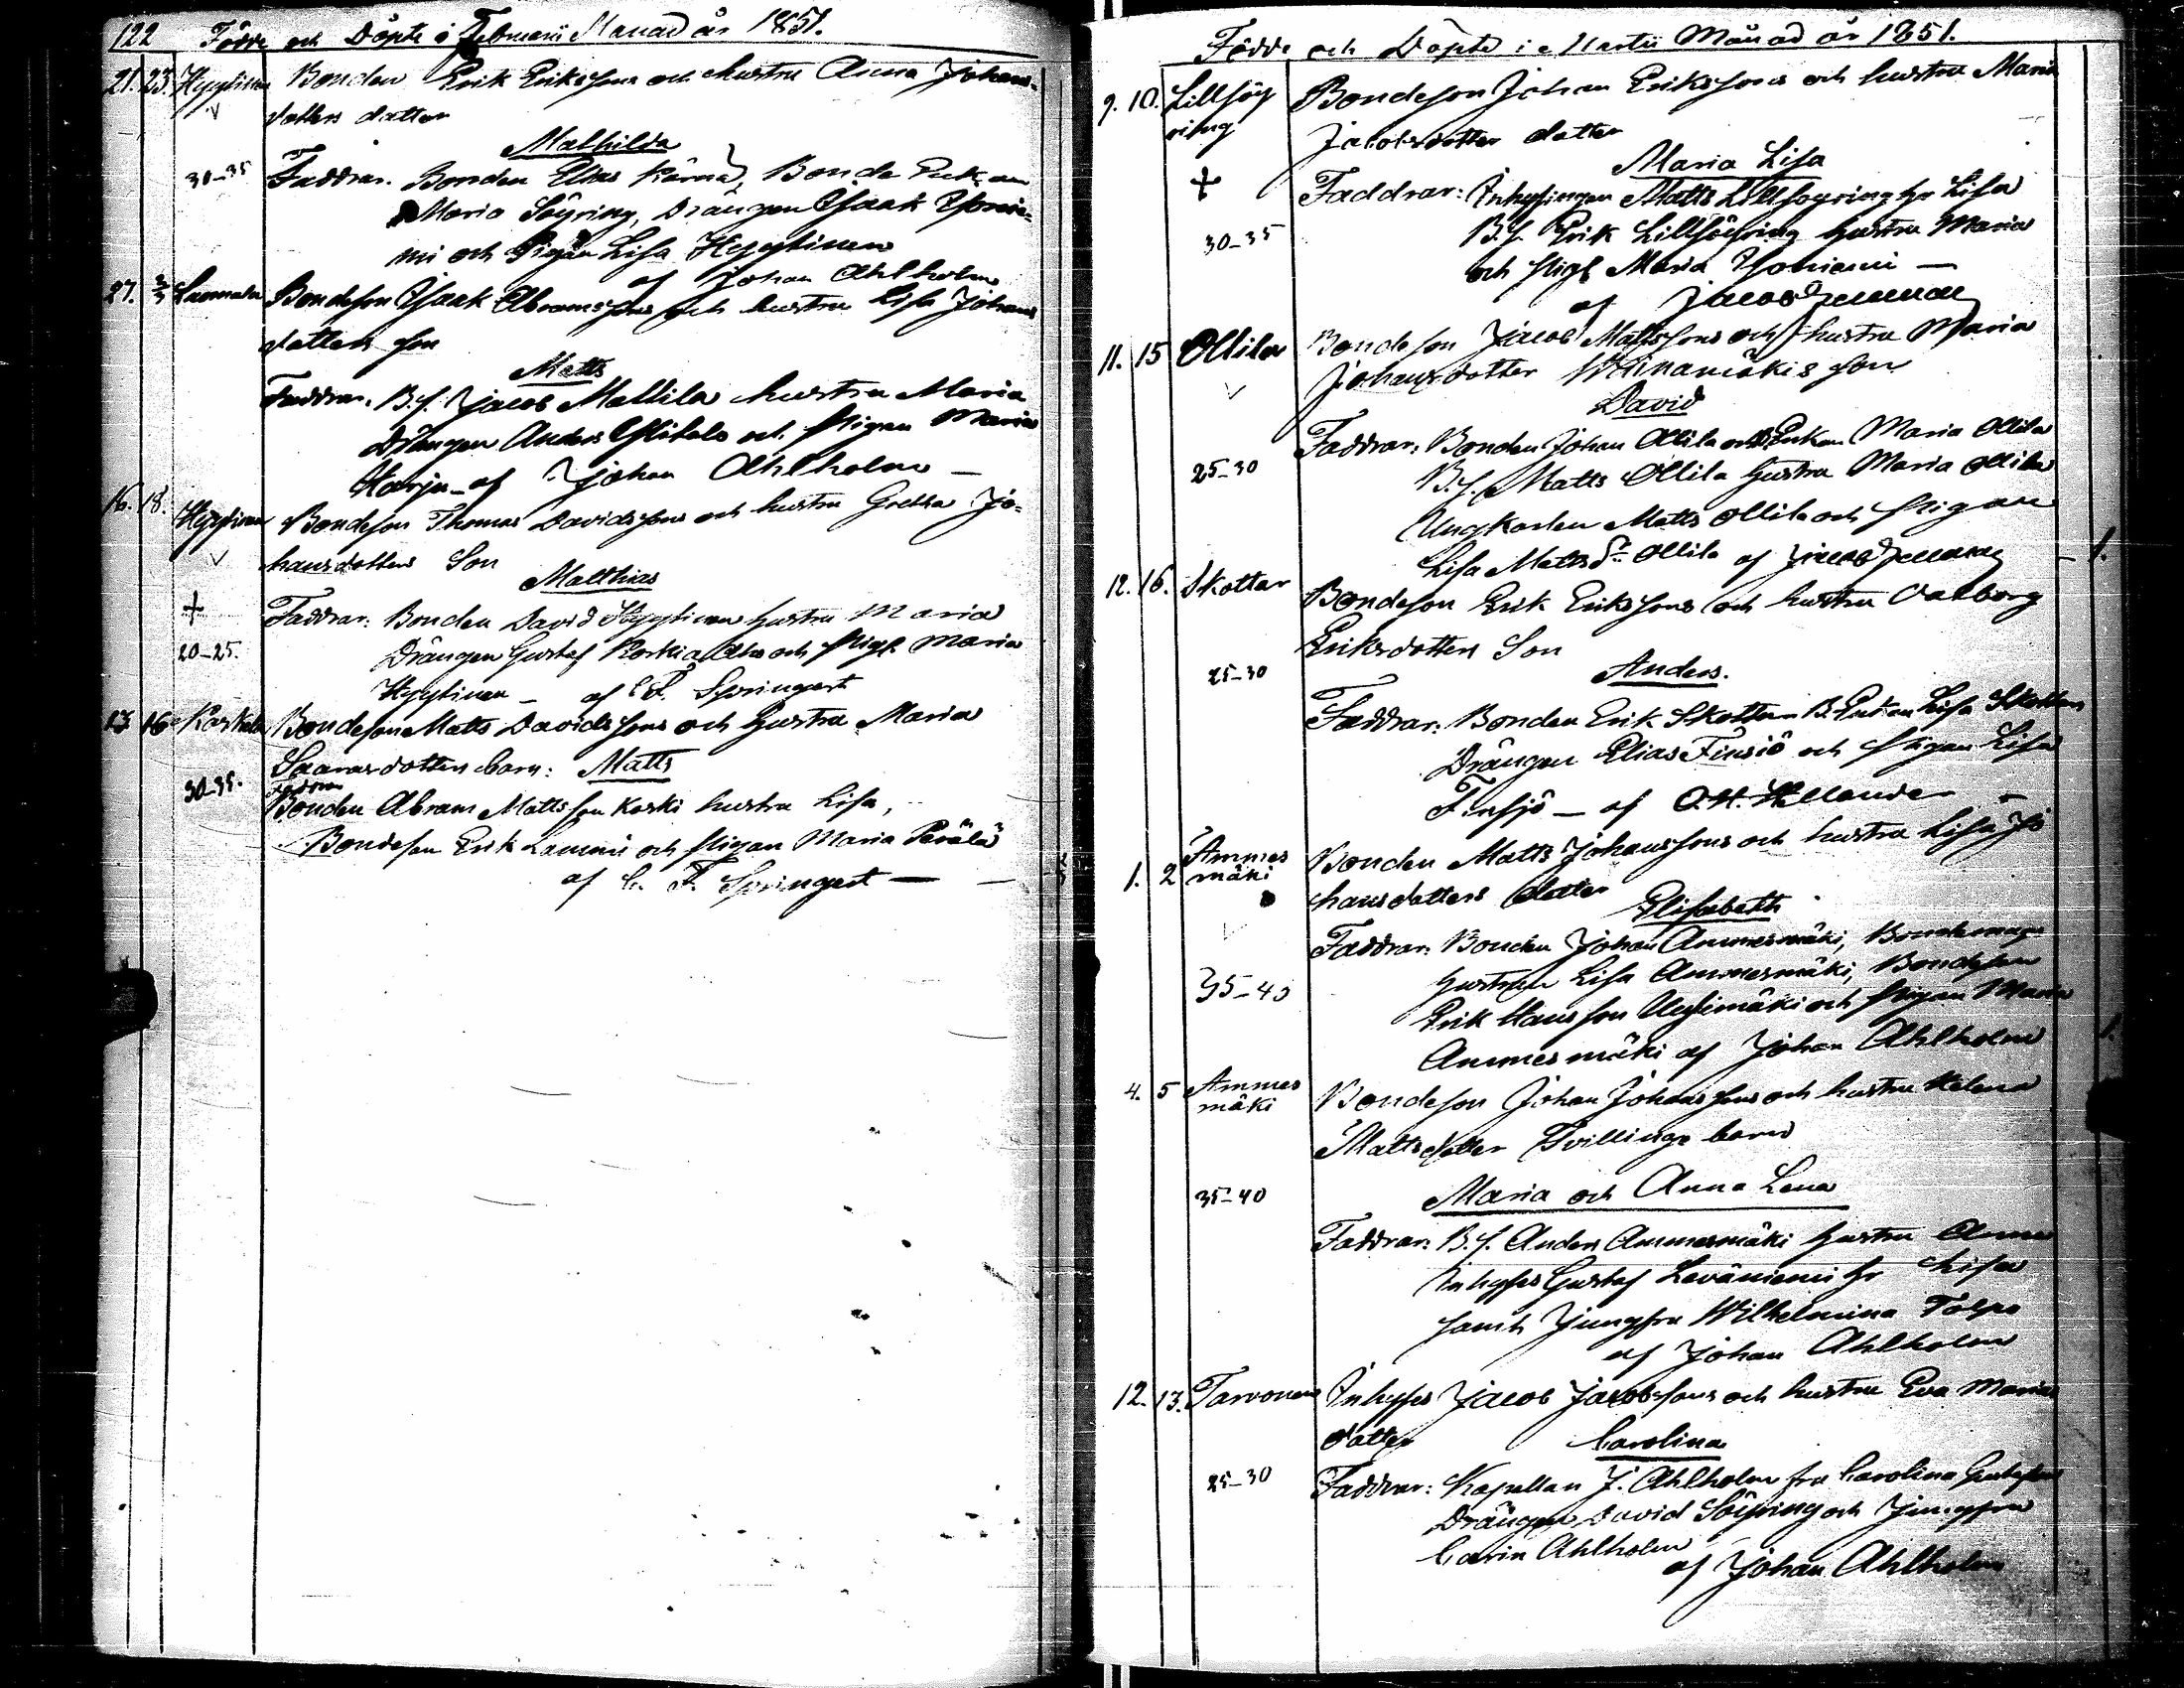 122 Födde och Döpte i Februarii Månad år 1851.
21. 23. Hyytinen Bonden Erik Erikssons och hustru Anna Johans-
dotters dotter
Mathilda
30-35 Faddrar. Bonden Elias Kärnä, Bonde Enkan
Maria Söyring, Drängen Isaak Yonie-
mi och Pigan Lisa Hyytinen
af Johan Ahlholm
27. Lammala Bondeson Isaak Abramssons och hustru Lisa Johans
dotters son
Matts
Faddrar. B.s. Jacob Mattila hustru Maria
Drängen Anders Ylitalo och Pigan Maria
Harju - af Johan Ahlholm -
16. 18. Hyytinen Bondeson Thomas Davidssons och hustru Gretha Jo-
hansdotters Son
Matthias
+ Faddrar: Bonden David Hyytinen hustru Maria
20-25. Drängen Gustaf och Pigan Maria
Hyytinen - af C. F. Springert
13 16 Koskela Bondeson Matts Davidssons och hustru Maria
Saarasdotters barn: Matts
30-35. Faddrar
Bonden Abram Mattsson Koski hustru Lisa,
Bondeson Erik Lammi och Pigan Maria Perälä
af C. F. Springert -
Födde och Döpte i Martii Månad år 1851.
9. 10. Lillsöy Bondeson Johan Erikssons och hustru Maria
ring Jacobsdotter dotter
Maria Lisa
+ Faddrar: Inhysingen Matts Lillsöyring hr Lisa
30-35 B.s. Erik Lillsöyring hustru Maria
och Pigan Maria Yoniemi -
af Jacob
11. 15 Ollila Bondeson Jacob Mattssons och hustru Maria
Johansdotter Wiinamäkis son
David
Faddrar: Bonden Johan Ollila och Enkan Maria Ollila
25-30 B.s. Matts Ollila hustru Maria Ollila
Ungkarlen Matts Ollila och Pigan
Lisa Matts Dr Ollila af Jacob - 1.
12. 16. Skottar Bondeson Erik Erikssons och hustru Valborg
Eriksdotters Son
25-30 Anders.
Faddrar: Bonden Erik Skottar B. Enkan Lisa Skottar
Drängen Elias Finsiö och Pigan Lisa
Finsjö - af O.H. Hellander -
1. 2 Ammes Bonden Matts Johanssons och hustru Lisa Jo
mäki hansdotters dotter
Elisabeth
Faddrar: Bonden Johan Ammesmäki, Bondemags
35-40 hustrun Lisa Ammesmäki, Bondeson
Erik Hansson Uusimäki och Pigan Maria
Ammesmäki af Johan Ahlholm 1.
4. 5 Ammes Bondeson Johan Johanssons och hustru Helena
mäki Mattsdotter Tvillinge barn
35-40 Maria och Anna Lena
Faddrar: B.s. Anders Ammesmäki hustru Anna
Inhyses Gustaf Leväniemi hr Lisa
samt Jungfru Wilhelmina Tolpo
af Johan Ahlholm
12. 13. Tarvonen Inhyses Jacob Jacobssons och hustru Eva Marias
dotter Carolina
25-30 Faddrar: Kapellan J. Ahlholm fru Carolina Gustafva
Drängen David Söyring och Jungfru
Carin Ahlholm
af Johan Ahlholm